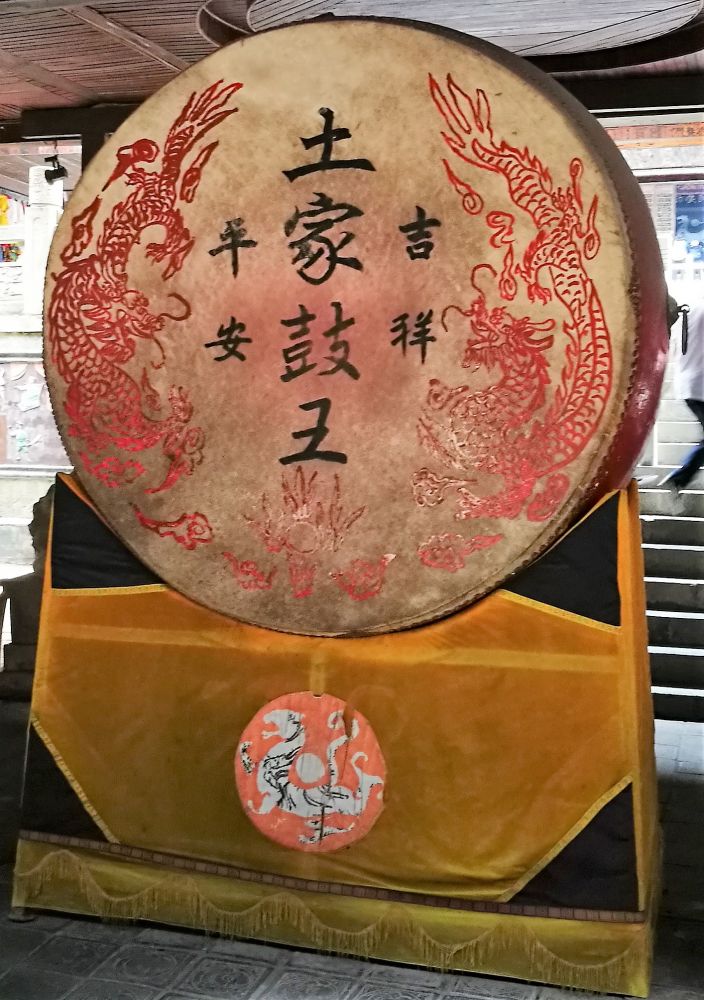 土家鼓王
吉祥
平安